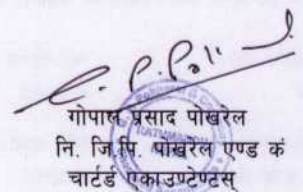 गोपाल प्रसाद पोखरेल
नि. जि.पि. पोखरेल एण्ड कं
चार्टर्ड एकाउण्टेण्टस्